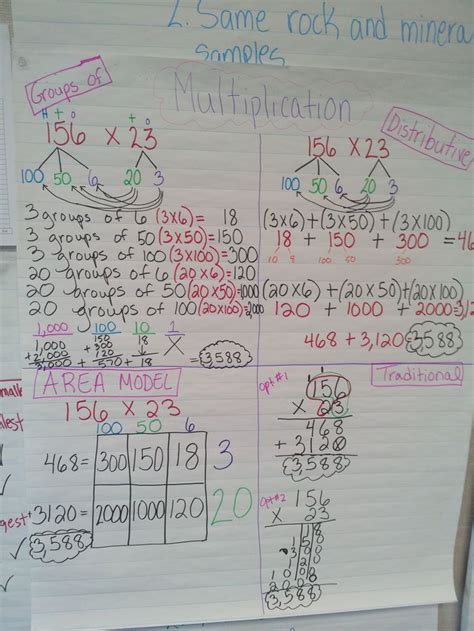 2. Same rock and minera
samples
Multiplication
Groups of
H T O T O
156 X 23
100 50 6 20 3
3 groups of 6 (3x6)= 18
3 groups of 50 (3x50)=150
3 groups of 100 (3x100)=300
20 groups of 6 (20x6)=120
20 groups of 50 (20x50)=1000
20 groups of 100 (20x100)=2000
1,000 100 10 1
1,000 150
+2,000 +300
120
3,000 + 570 + 18
3588
Distributive
156 X 23
100 50 6 20 3
(3x6)+(3x50)+(3x100)
18 + 150 + 300 =46
10 8 100 50 300
(20x6)+(20x50)+(20x100)
120 + 1000 + 2000=3,12
468 + 3,120 3588
AREA MODEL
156 X 23
100 50 6
468= 300 150 18 3
+3120= 2000 1000 120 20
3,588
Traditional
opt #1
1
156
X 23
468
+ 3120
3,588
opt #2
156
X 23
18
150
300
120
1000
2000
3,588
small
llest
gest